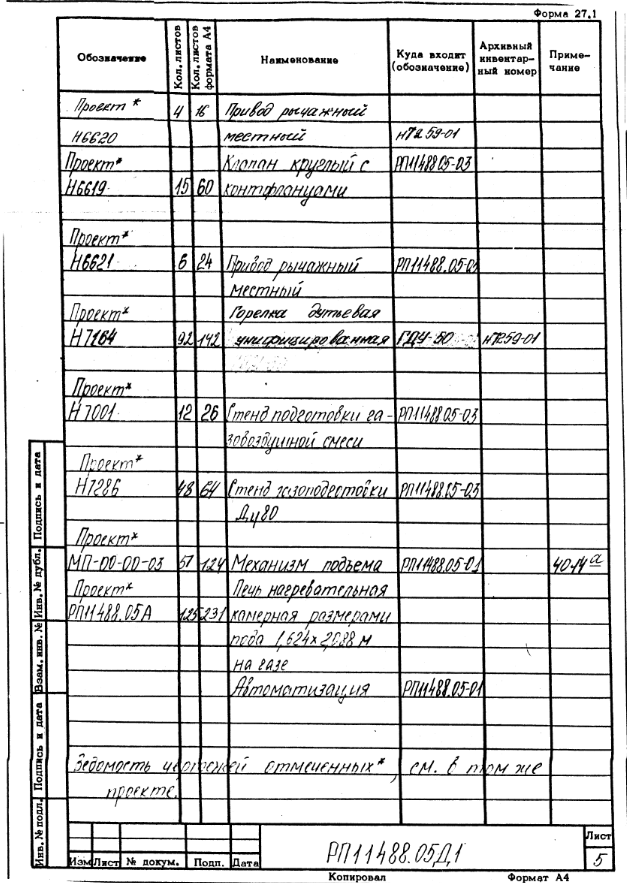 Форма 27.1
Обозначение Кол. листов Кол. листов формата А4 Наименование Куда входит (обозначение) Архивный инвентарный номер Примечание
Проект* 4 16 Привод рычажный
Н6620 местный Н7259-01
Проект* Клапан круглый с РП11488.05-03
Н6619 15 60 контфланцами
Проект*
Н6621 6 24 Привод рычажный РП11488.05-03
местный
Проект* Горелка дутьевая
Н7164 92 142 унифицированная ГДУ-50 Н7259-01
Проект*
Н7001 12 26 Стенд подготовки га-РП11488.05-03
зовоздушной смеси
Проект*
Н7286 48 64 Стенд РП11488.05-03
Ду80
Проект*
МП-00-00-03 57 124 Механизм подъема РП11488.05-01 40-14а
Проект* Печь нагревательная
РП11488.05А 125 231 камерная размерами
пода 1,624х2,088 м
на газе
Автоматизация РП11488.05-01
Ведомость чертежей отмеченных*, см. в том же
проекте.
Инв. № подл. Подпись и дата Взам. инв. № Инв. № дубл. Подпись и дата
Изм Лист № докум. Подп. Дата
РП11488.05Д1
Лист
5
Копировал Формат А4